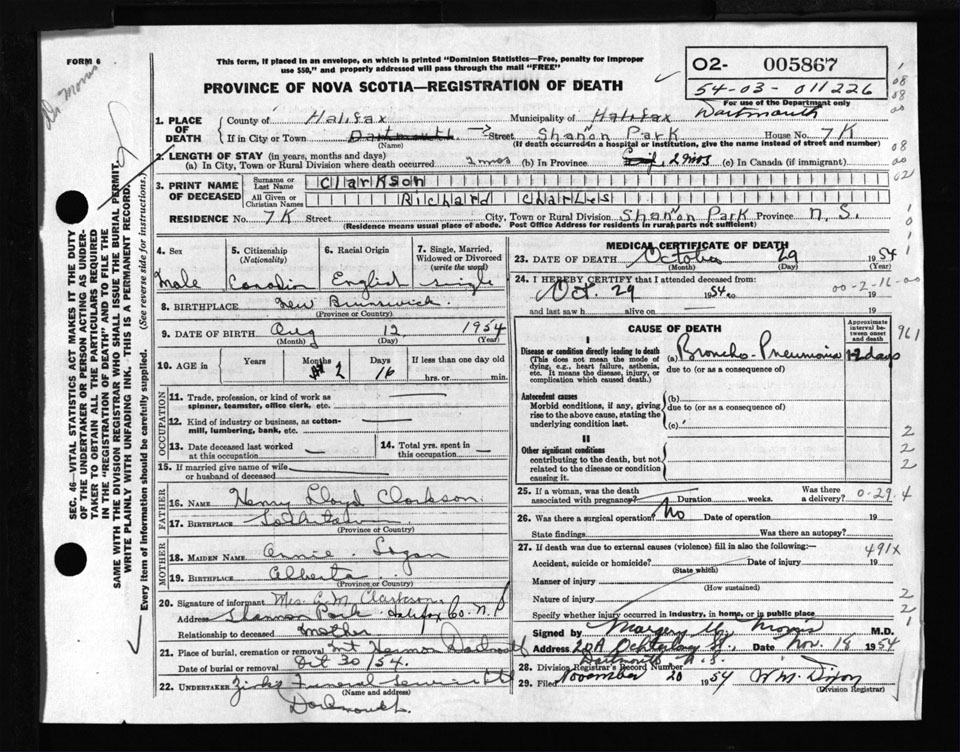 FORM 6
Dr Morris
This form, if placed in an envelope, on which is printed "Dominion Statistics—Free, penalty for improper
use $50," and properly addressed will pass through the mail "FREE"
PROVINCE OF NOVA SCOTIA—REGISTRATION OF DEATH
O2- 005867
54-03-011226
For use of the Department only
Dartmouth
1. PLACE OF DEATH
County of Halifax Municipality of Halifax
If in City or Town Dartmouth Street Shanon Park House No. 7K
(Name) (If death occurred in a hospital or institution, give the name instead of street and number)
2. LENGTH OF STAY (in years, months and days)
(a) In City, Town or Rural Division where death occurred 2 mos (b) In Province 2 mos (c) In Canada (if immigrant)
3. PRINT NAME OF DECEASED
Surname or Last Name Clarkson
All Given or Christian Names Richard Charles
RESIDENCE No. 7K Street City, Town or Rural Division Shanon Park Province N.S.
(Residence means usual place of abode. Post Office Address for residents in rural parts not sufficient)
4. Sex
Male
5. Citizenship
(Nationality)
6. Racial Origin
English
7. Single, Married,
Widowed or Divorced
(write the word)
single
8. BIRTHPLACE New Brunswick
(Province or Country)
9. DATE OF BIRTH Aug 12 1954
(Month) (Day) (Year)
10. AGE in Years Months Days If less than one day old
2 16 hrs. or min.
OCCUPATION
11. Trade, profession, or kind of work as
spinner, teamster, office clerk, etc. —
12. Kind of industry or business, as cotton-
mill, lumbering, bank, etc. —
13. Date deceased last worked
at this occupation —
14. Total yrs. spent in
this occupation —
15. If married give name of wife
or husband of deceased —
FATHER
16. NAME Henry Lloyd Clarkson
17. BIRTHPLACE
(Province or Country)
MOTHER
18. MAIDEN NAME Annie Logan
19. BIRTHPLACE Alberta
(Province or Country)
20. Signature of informant Mrs. C. M. Clarkson
Address Shannon Park Halifax Co. N.S
Relationship to deceased mother
21. Place of burial, cremation or removal Mt Hermon Dartmouth
Date of burial or removal Oct 30/54.
22. UNDERTAKER Zinks Funeral Service
(Name and address)
Dartmouth.
MEDICAL CERTIFICATE OF DEATH
23. DATE OF DEATH October 29 1954
(Month) (Day) (Year)
24. I HEREBY CERTIFY that I attended deceased from:
Oct. 29 1954 to 19
00-2-16-00
and last saw h alive on 19
CAUSE OF DEATH
Approximate
interval be-
tween onset
and death
I
Disease or condition directly leading to death
(This does not mean the mode of
dying, e.g., heart failure, asthenia,
etc. It means the disease, injury, or
complication which caused death.)
(a) Broncho-Pneumonia 1-2 days
due to (or as a consequence of)
961
Antecedent causes
Morbid conditions, if any, giving
rise to the above cause, stating the
underlying condition last.
(b)
due to (or as a consequence of)
(c)
II
Other significant conditions
contributing to the death, but not
related to the disease or condition
causing it.
25. If a woman, was the death
associated with pregnancy? Duration weeks. Was there
a delivery? 0-29.4
26. Was there a surgical operation? No Date of operation 19
State findings Was there an autopsy?
27. If death was due to external causes (violence) fill in also the following:—
491X
Accident, suicide or homicide? Date of injury 19
(State which)
Manner of injury
(How sustained)
Nature of injury
Specify whether injury occurred in industry, in home, or in public place
Signed by Margery Morris M.D.
Address 20A Ochterloney St. Date Nov. 18 1954
Dartmouth N.S.
28. Division Registrar's Record Number
29. Filed November 20 1954 W M. Dixon
(Division Registrar)
SEC. 46—VITAL STATISTICS ACT MAKES IT THE DUTY
OF THE UNDERTAKER OR PERSON ACTING AS UNDER-
TAKER TO OBTAIN ALL THE PARTICULARS REQUIRED
IN THE "REGISTRATION OF DEATH" AND TO FILE THE
SAME WITH THE DIVISION REGISTRAR WHO SHALL ISSUE THE BURIAL PERMIT.
WRITE PLAINLY WITH UNFADING INK. THIS IS A PERMANENT RECORD.
Every item of information should be carefully supplied. (See reverse side for instructions.)